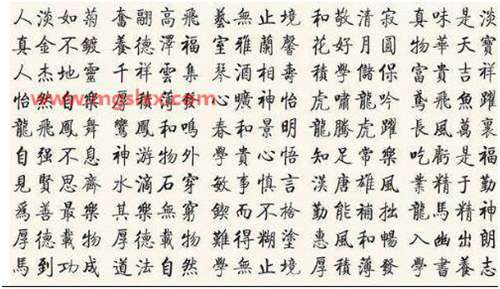 人淡如菊 奮翮高飛 藝無止境 和敬清寂 真味是淡
真金不鍍 養德澤福 室雅蘭馨 花好月圓 物華天寶
人杰地靈 千祥雲集 琴酒相壽 積學儲保 富貴吉祥
怡然自樂 厚積薄 心曠神怡 虎嘯龍吟 鳶飛魚躍
www.mgslxx.com
龍飛鳳舞 鸞鳳和鳴 春和景明 龍騰虎躍 長風萬裏
自强不息 神游物外 學貴心悟 知足常樂 吃虧是福
見賢思齊 水滴石穿 敏事慎言 漢唐雄風 業精于勤
為善最樂 其樂無窮 鍥而不捨 勤能補拙 龍馬精神
厚德載物 厚德載物 難得糊塗 惠風和暢 入幽出朗
馬到功成 道法自然 學無止境 厚積薄發 學書養志